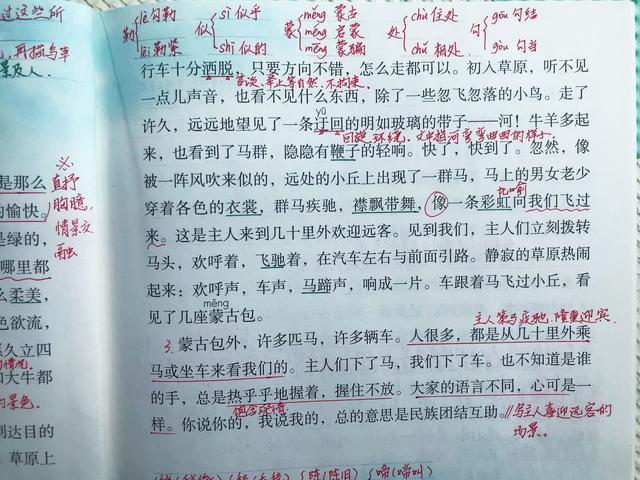 过这些所
lē 勾勒
勒
lēi 勒紧
sì 似乎
似
shì 似的
měng 蒙古
蒙 méng 启蒙
mēng 蒙骗
chù 住处
处
chǔ 相处
gōu 句结
句
gōu 句当
再描写事
景及人。
行车十分洒脱,只要方向不错,怎么走都可以。初入草原,听不见
言谈、举止等自然,不拘束。
一点儿声音,也看不见什么东西,除了一些忽飞忽落的小鸟。走了
yū
许久,远远地望见了一条迂回的明如玻璃的带子——河!牛羊多起
回旋,环绕,文中指河弯弯曲曲的样子。
来,也看到了马群,隐隐有鞭子的轻响。快了,快到了。忽然,像
被一阵风吹来似的,远处的小丘上出现了一群马,马上的男女老少
比喻
穿着各色的衣裳,群马疾驰,襟飘带舞,像一条彩虹向我们飞过
来。这是主人来到几十里外欢迎远客。见到我们,主人们立刻拨转
马头,欢呼着,飞驰着,在汽车左右与前面引路。静寂的草原热闹
起来:欢呼声,车声,马蹄声,响成一片。车跟着马飞过小丘,看
měng
见了几座蒙古包。
主人策马疾驰、隆重迎宾
3. 蒙古包外,许多匹马,许多辆车。人很多,都是从几十里外乘
马或坐车来看我们的。主人们下了马,我们下了车。也不知道是谁
的手,总是热乎乎地握着,握住不放。大家的语言不同,心可是一
样。你说你的,我说我的,总的意思是民族团结互助。//与主人喜迎远客的
场景。
是那么
的愉快。
直抒
胸臆,
情景交
融
是绿的,
哪里都
么柔美,
色欲流,
久立四
和大牛都
景色。
到达目的
草原上
陈(陈旧)
啼(啼叫)